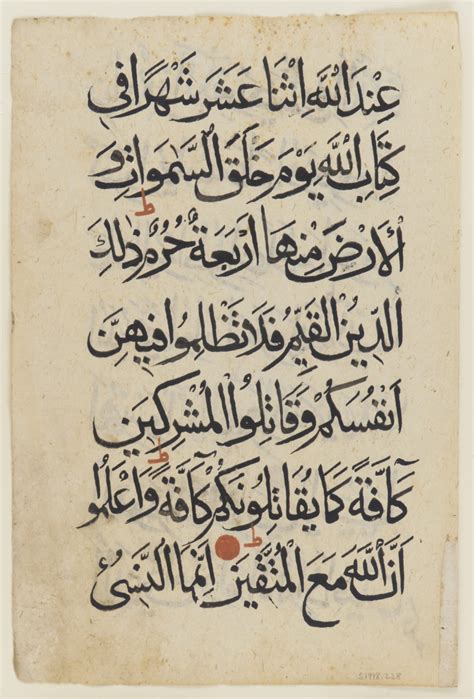 عِنْدَ اللَّهِ اثْنَا عَشَرَ شَهْرًا فِي
كِتَابِ اللَّهِ يَوْمَ خَلَقَ السَّمَوَاتِ وَ
الْأَرْضَ مِنْهَا أَرْبَعَةٌ حُرُمٌ ط ذَلِكَ
الدِّينُ الْقَيِّمُ فَلَا تَظْلِمُوا فِيهِنَّ
أَنْفُسَكُمْ وَقَاتِلُوا الْمُشْرِكِينَ
كَافَّةً كَمَا يُقَاتِلُونَكُمْ كَافَّةً ط وَاعْلَمُوا
أَنَّ اللَّهَ مَعَ الْمُتَّقِينَ ط إِنَّمَا النَّسِيءُ
S1998.228